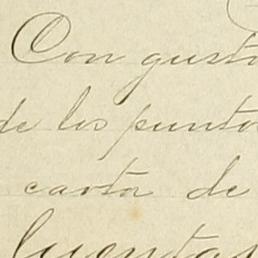 Con gusto
de los puntos
carta de
cuentas